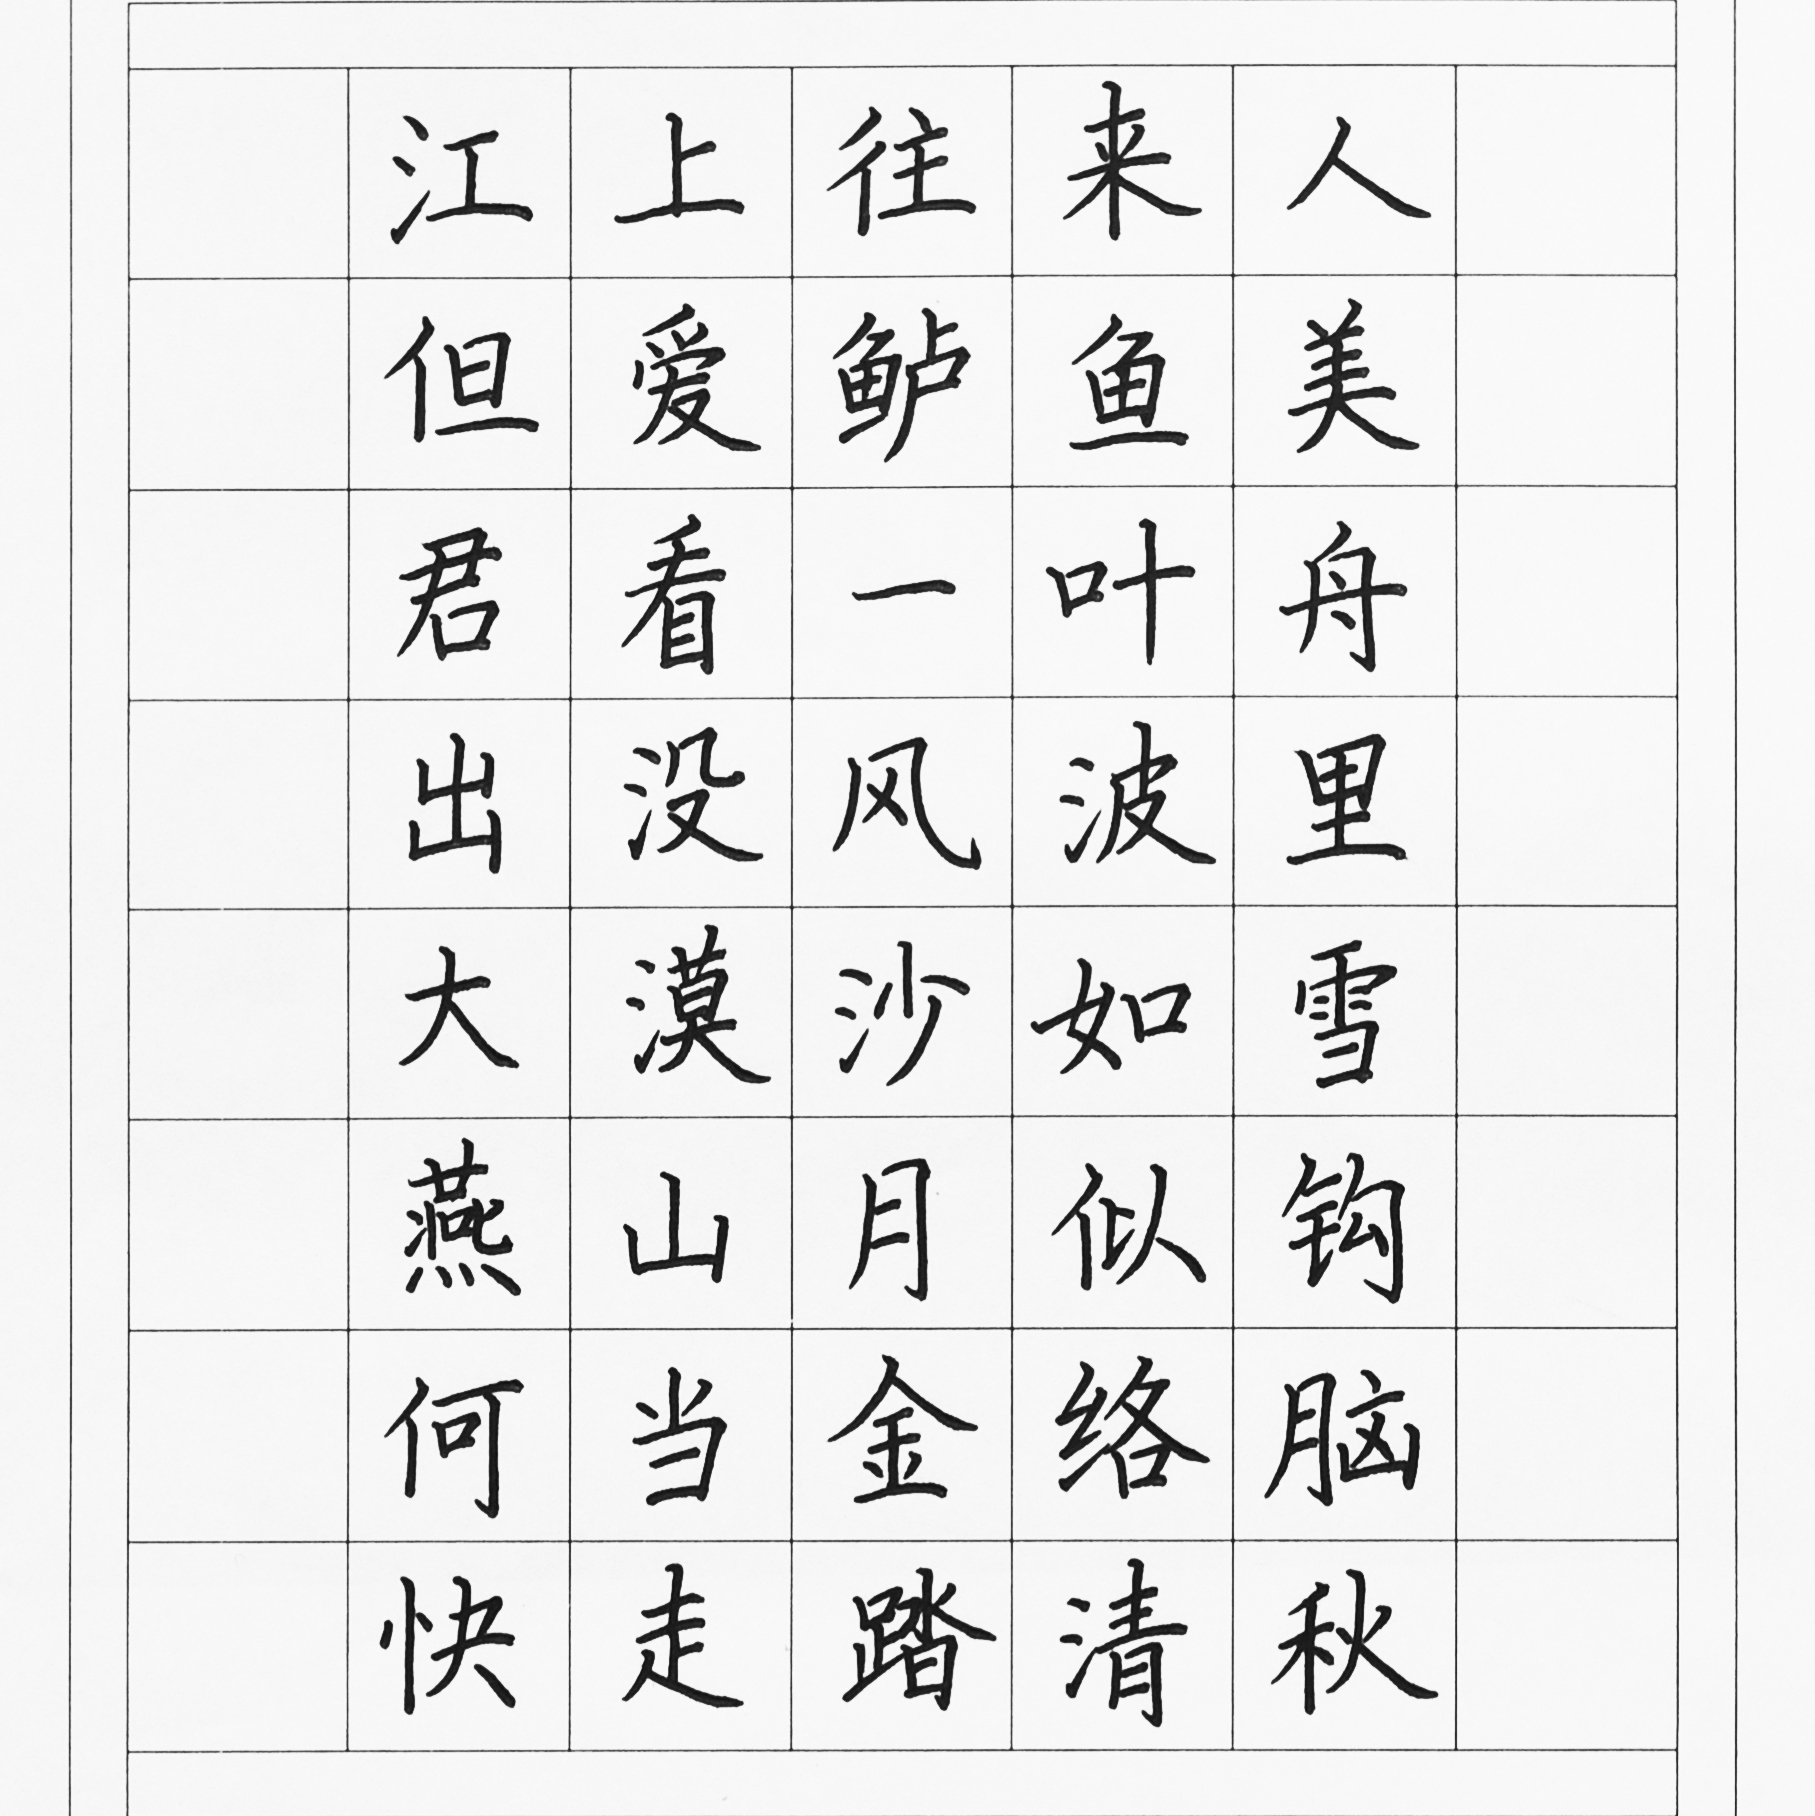 江上往来人
但爱鲈鱼美
君看一叶舟
出没风波里
大漠沙如雪
燕山月似钩
何当金络脑
快走踏清秋